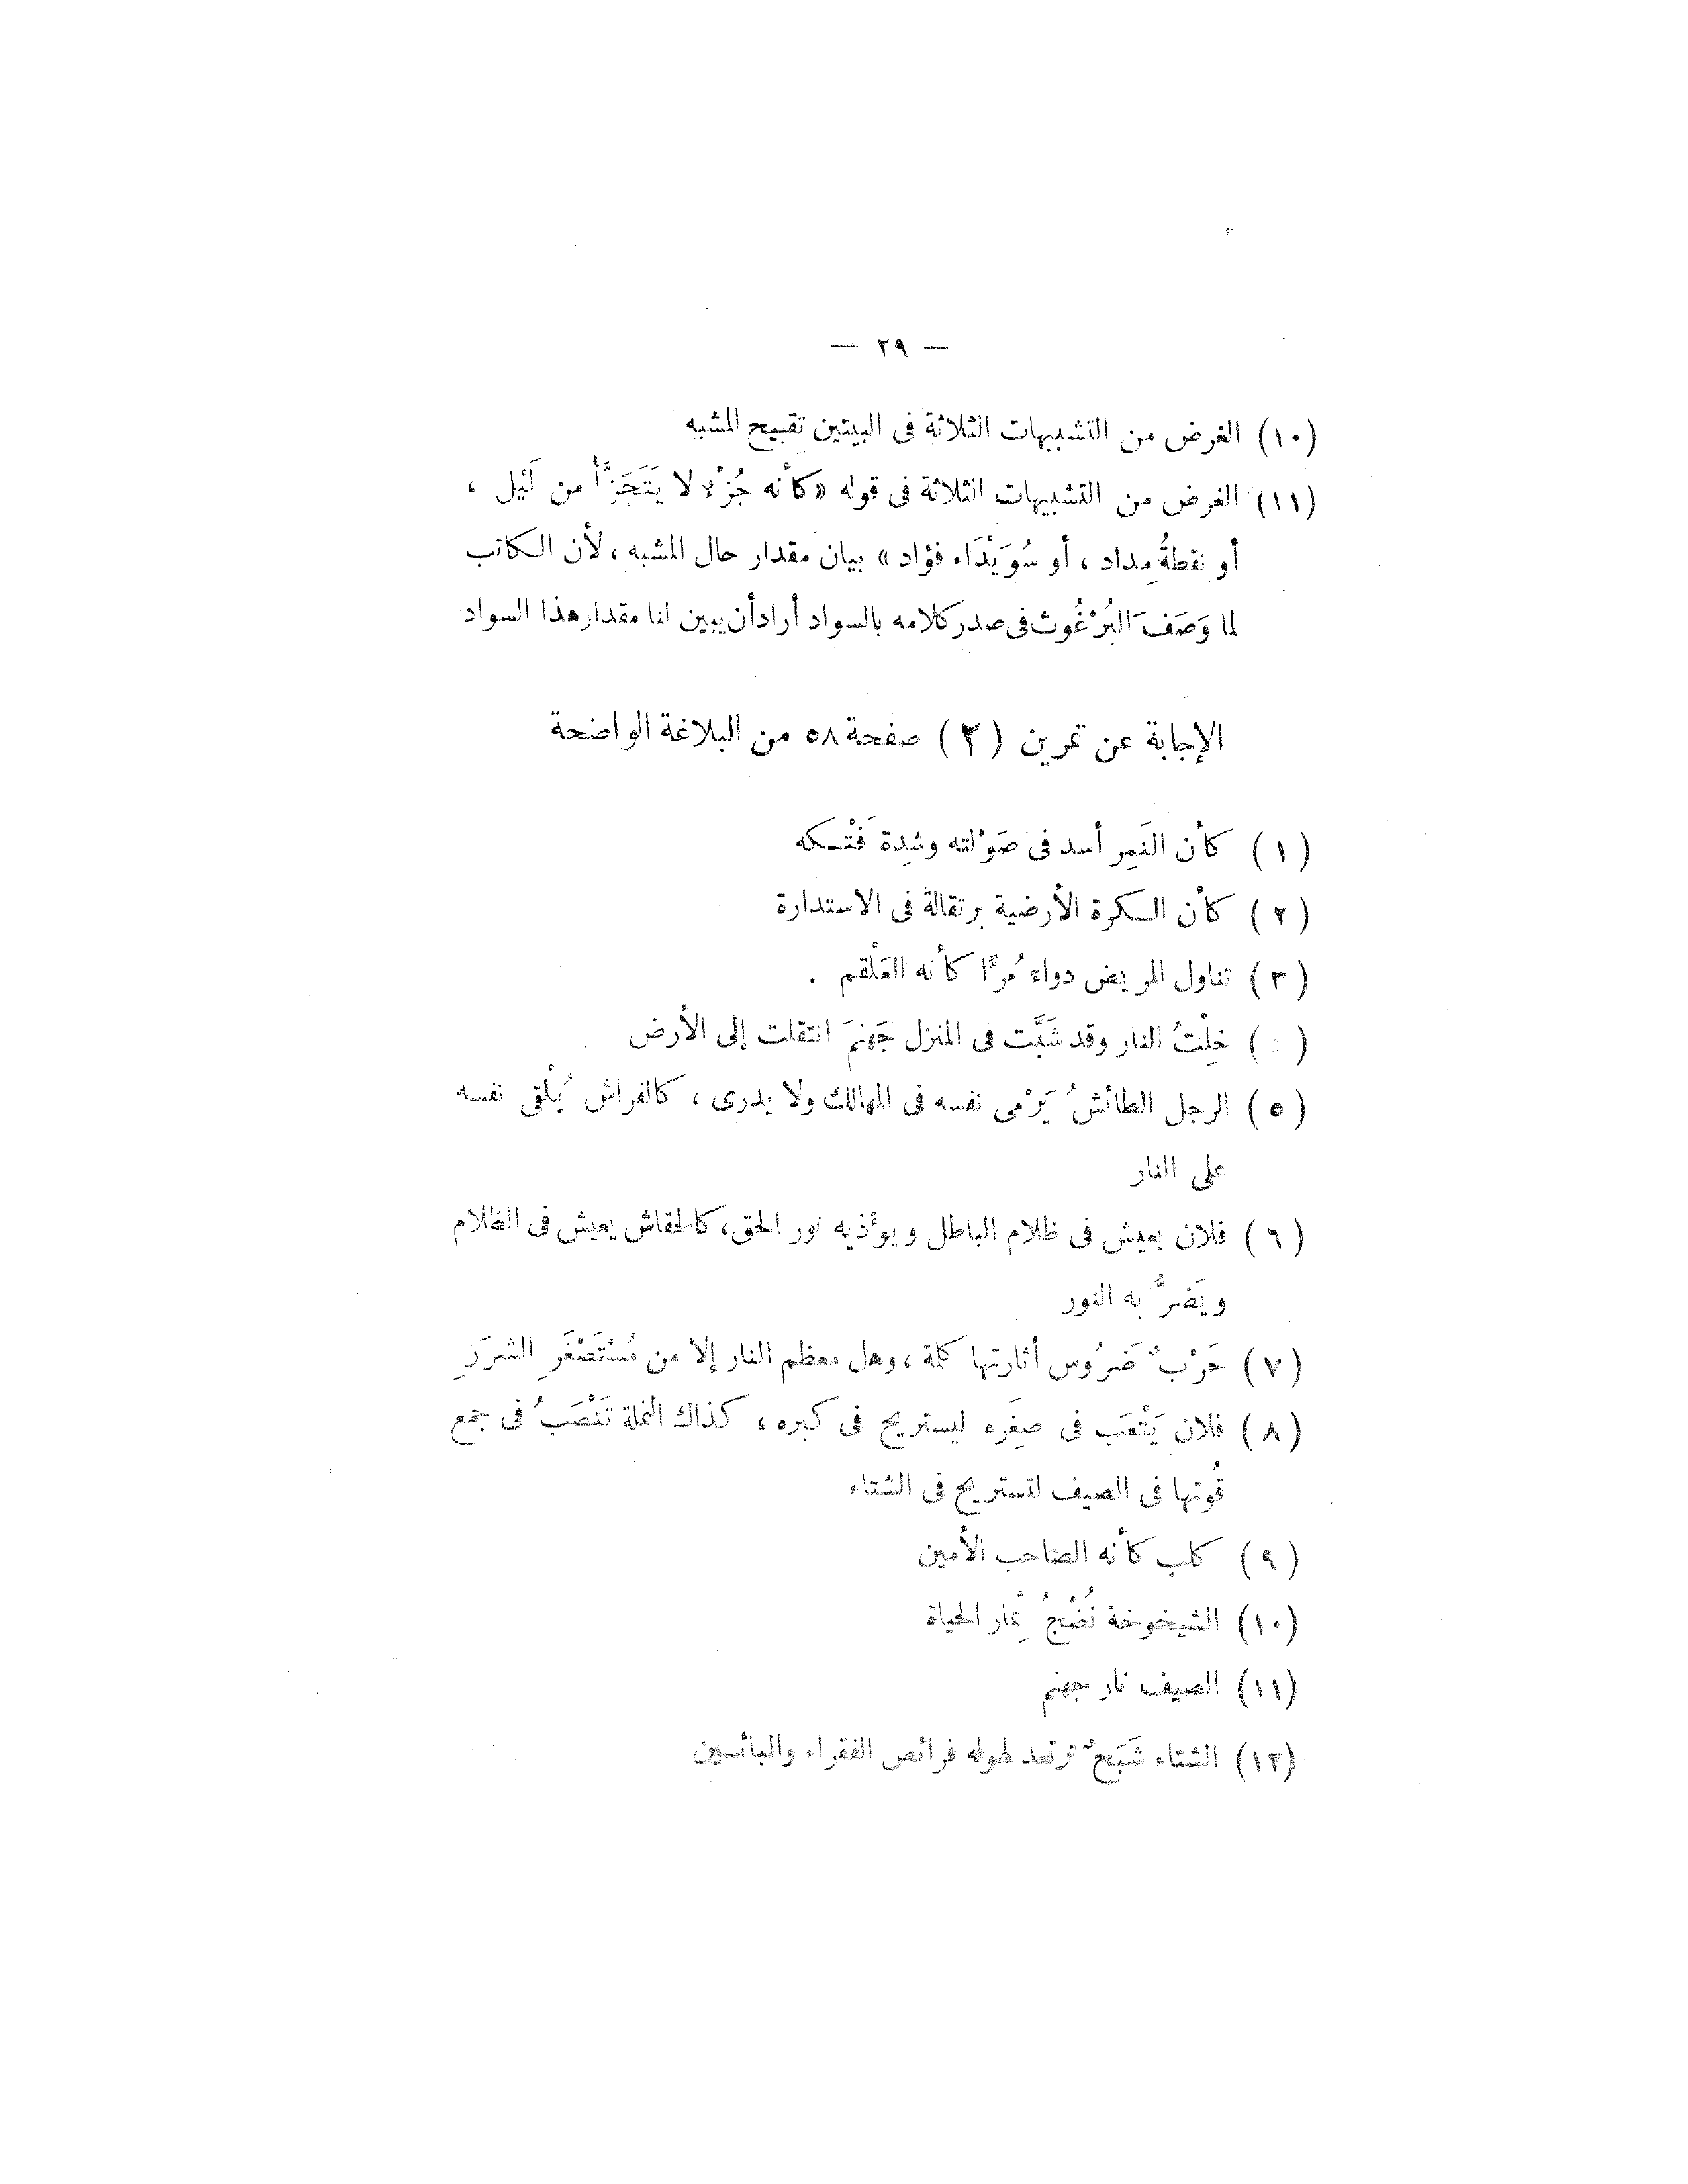 — ٢٩ —
(١٠) الغرض من التشبيهات الثلاثة فى البيتين تقبيح المشبه
(١١) الغرض من التشبيهات الثلاثة فى قوله «كأنه جُزْء لا يَتَجَزَّأُ من لَيْل ،
أو نقطةُ مِداد ، أو سُوَيْدَاء فؤاد » بيان مقدار حال المشبه ، لأن الكاتب
لما وَصَفَ البُرْغُوث فى صدر كلامه بالسواد أراد أن يبين لنا مقدار هذا السواد
الإجابة عن تمرين (٢) صفحة ٥٨ من البلاغة الواضحة
(١) كأن النَمِر أسد فى صَوْلته وشِدة فَتْكه
(٢) كأن الكرة الأرضية برتقالة فى الاستدارة
(٣) تناول المريض دواء مُرًّا كأنه العَلْقم .
( ) خِلْتُ النار وقد شَبَّت فى المنزل جَهنمَ انتقلت إلى الأرض
(٥) الرجل الطائشُ يَرْمى نفسه فى المهالك ولا يدرى ، كالفراش يُلْقى نفسه
على النار
(٦) فلان يعيش فى ظلام الباطل ويؤذيه نور الحق، كالخفاش يعيش فى الظلام
ويَضرُّ به النور
(٧) حَرْبٌ ضَرُوس أثارتها كلمة ، وهل معظم النار إلا من مُسْتَصْغَرِ الشررَِ
(٨) فلان يَتْعَب فى صِغَره ليستريح فى كبره ، كذلك النملة تَنْصَبُ فى جمع
قُوتها فى الصيف لتستريح فى الشتاء
(٩) كلب كأنه الصاحب الأمين
(١٠) الشيخوخة نُضْجُ ثِمُار الحياة
(١١) الصيف نار جهنم
(١٢) الشتاء شَبَحٌ ترتعد لهوله فرائص الفقراء والبائسين